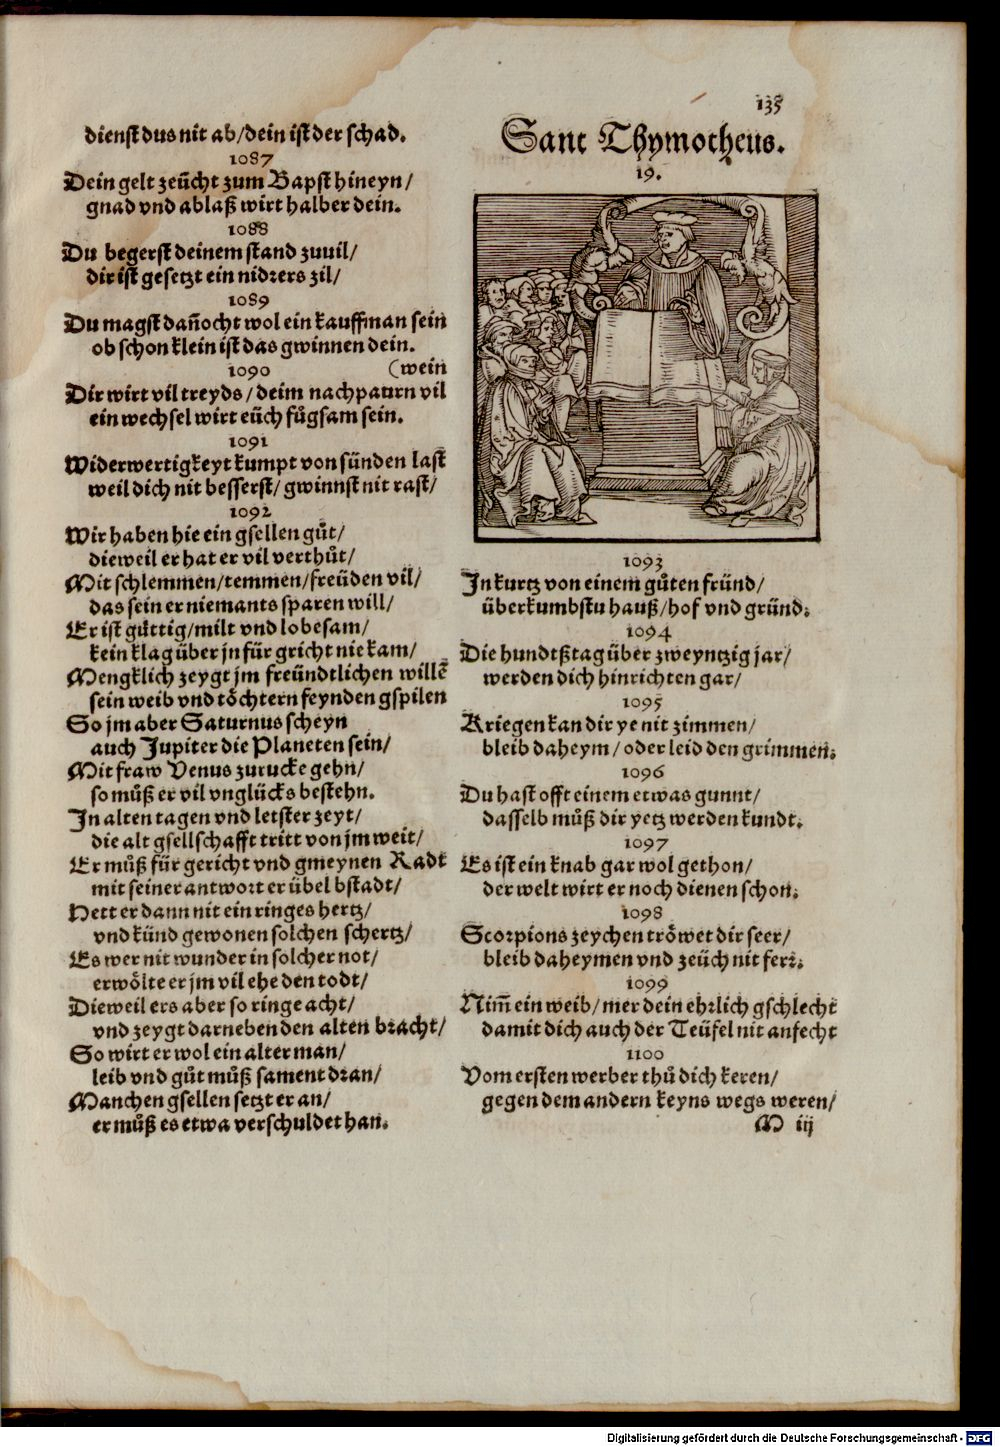 135
dienst dus nit ab/dein ist der schad.
1087
Dein gelt zeücht zum Bapst hineyn/
gnad vnd ablaß wirt halber dein.
1088
Du begerst deinem stand zuuil/
dir ist gesetzt ein nidrers zil/
1089
Du magst dan̄ocht wol ein kauffman sein
ob schon klein ist das gwinnen dein.
1090 (wein
Dir wirt vil treyds/deim nachpaurn vil
ein wechsel wirt eüch fůgsam sein.
1091
Widerwertigkeyt kumpt von sünden last
weil dich nit besserst/gwinnst nit rast/
1092
Wir haben hie ein gsellen gůt/
dieweil er hat er vil verthůt/
Mit schlemmen/temmen/freüden vil/
das sein er niemants sparen will/
Er ist gůttig/milt vnd lobesam/
kein klag über jn für gricht nie kam/
Mengklich zeygt jm freündtlichen willē
sein weib vnd töchtern feynden gspilen
So jm aber Saturnus scheyn
auch Jupiter die Planeten sein/
Mit fraw Venus zurucke gehn/
so můß er vil vnglücks bestehn.
In alten tagen vnd letster zeyt/
die alt gsellschafft tritt von jm weit/
Er můß für gericht vnd gmeynen Radt
mit seiner antwort er übel bstadt/
Hett er dann nit ein ringes hertz/
vnd künd gewonen solchen schertz/
Es wer nit wunder in solcher not/
erwölte er jm vil ehe den todt/
Dieweil ers aber so ringe acht/
vnd zeygt darneben den alten bracht/
So wirt er wol ein alter man/
leib vnd gůt můß sament dran/
Manchen gsellen setzt er an/
er můß es etwa verschuldet han.
Sanct Thymotheus.
19.
1093
In kurtz von einem gůten fründ/
überkumbstu hauß/hof vnd gründ.
1094
Die hundtßtag über zweyntzig jar/
werden dich hinrichten gar/
1095
Kriegen kan dir ye nit zimmen/
bleib daheym/oder leid den grimmen.
1096
Du hast offt einem etwas gunnt/
dasselb můß dir yetz werden kundt.
1097
Es ist ein knab gar wol gethon/
der welt wirt er noch dienen schon.
1098
Scorpions zeychen tröwet dir seer/
bleib daheymen vnd zeüch nit ferr.
1099
Nim̄ ein weib/mer dein ehrlich gschlecht
damit dich auch der Teüfel nit anfecht
1100
Vom ersten werber thů dich keren/
gegen dem andern keyns wegs weren/
M iij
Digitalisierung gefördert durch die Deutsche Forschungsgemeinschaft - DFG